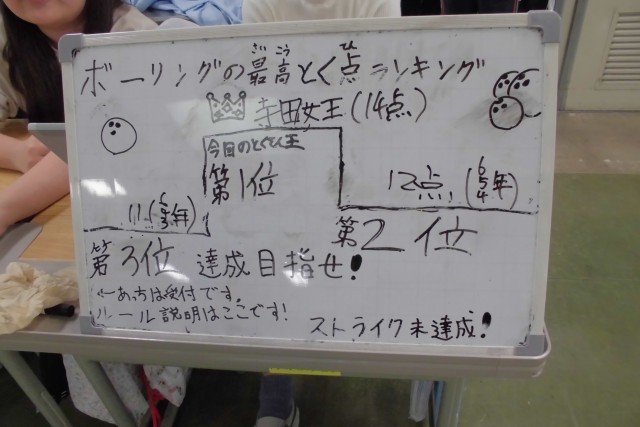 ボーリングの最高とく点ランキング
さいこう
ひ
寺田女王(14点)
今日のとくとく王
第1位
12点(654年)
11(653年)
第2位
第3位 達成目指せ!
←あっちは受付です。
ルール説明はここです!
ストライク未達成!